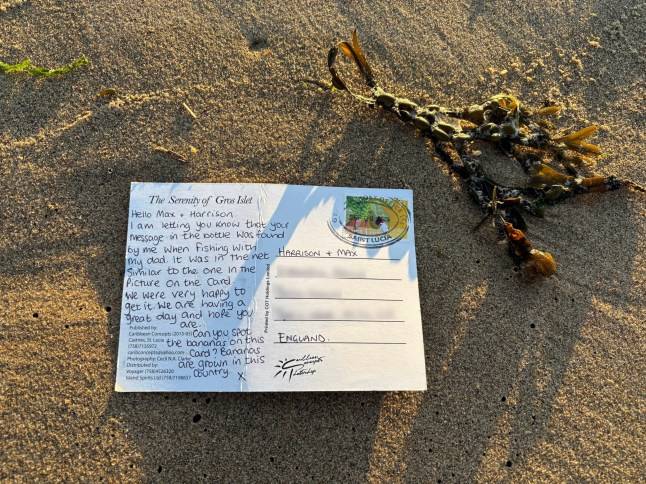 The Serenity of Gros Islet
Hello Max + Harrison
I am letting you know that your
message in the bottle was found
by me when fishing with
my dad. it was in the net
Similar to the one in the
Picture on the Card
We were very happy to
get it. We are having a
great day and hope you
are.
Can you spot
the bananas on this
Card? Bananas
are grown in this
Country. X
Published by:
Caribbean Concepts (2015-05)
Castries, St. Lucia
caribconcepts@yahoo.com
Photography: Cecil N.A. Clarke
Distributed by:
Island Spirits Ltd
SAINT LUCIA
HARRISON + MAX
ENGLAND.